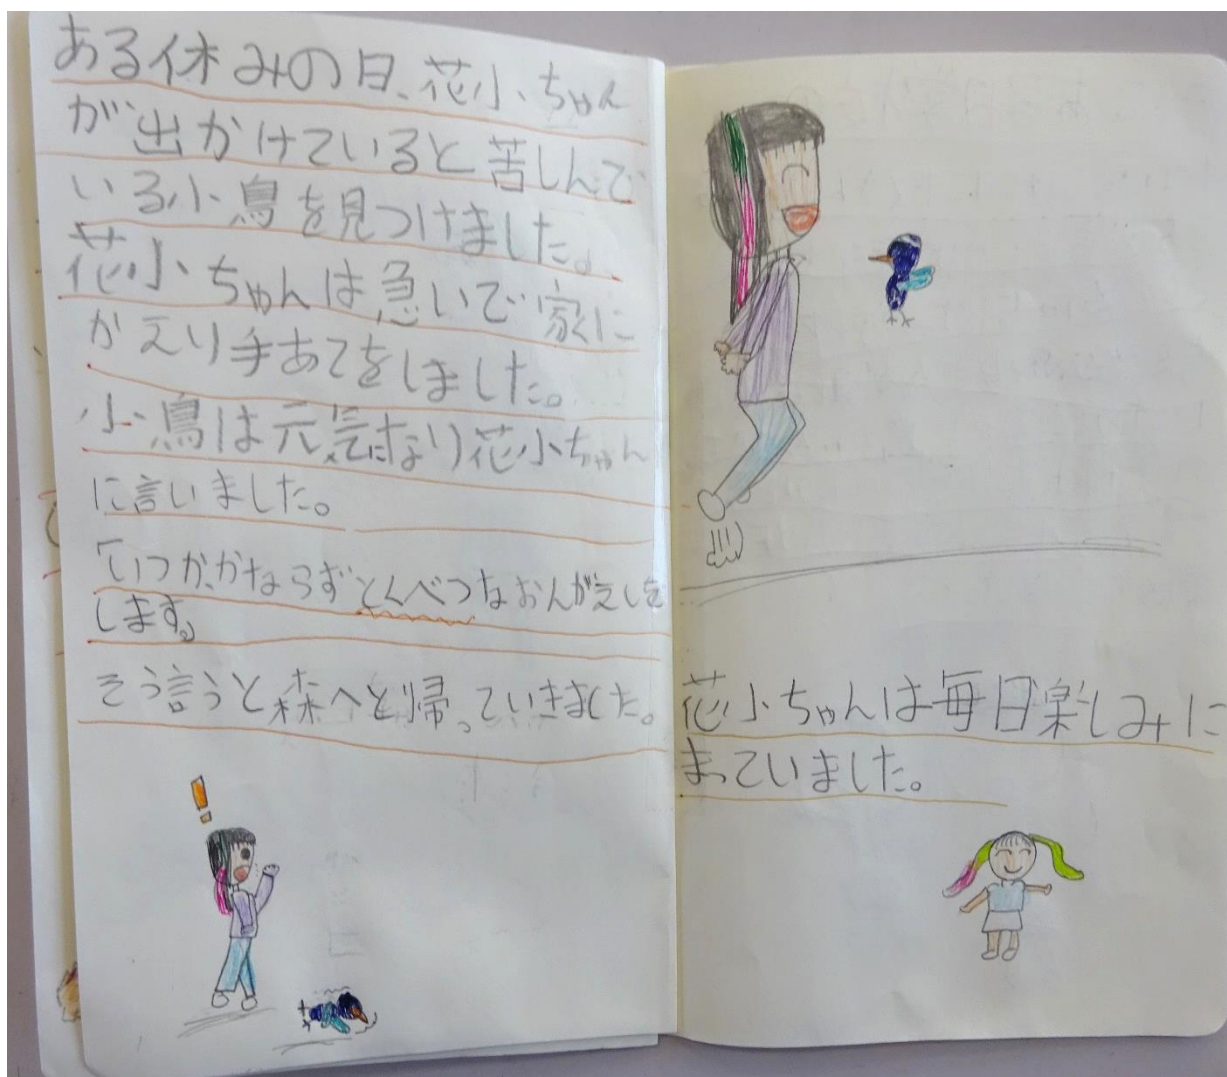 ある休みの日、花小ちゃん
が出かけていると苦しんで
いる小鳥を見つけました。
花小ちゃんは急いで家に
かえり手あてをしました。
小鳥は元気になり花小ちゃん
に言いました。
「いつか、かならずとくべつなおんがえしを
します。」
そう言うと森へと帰っていきました。
花小ちゃんは毎日楽しみに
まっていました。